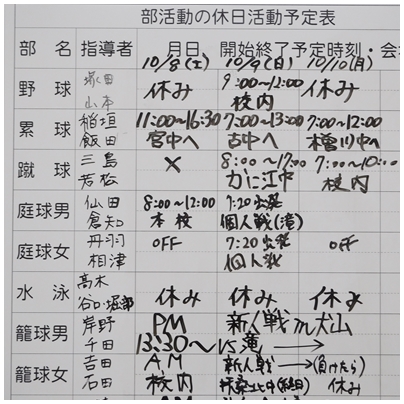 部活動の休日活動予定表
部 名 指導者 月日 開始終了予定時刻・会
10/8(土) 10/9(日) 10/10(月)
野 球 塚田 山本 休み 9:00~12:00 校内 休み
塁 球 稲垣 飯田 11:00~16:30 宮中へ 7:00~13:00 古中へ 7:00~12:00 檜川中へ
蹴 球 三島 若松 × 8:00~17:00 かに江中 7:00~10:00 校内
庭球男 仙田 倉知 8:00~12:00 本校 7:20出発 個人戦(滝)
庭球女 丹羽 相津 OFF 7:20出発 個人戦 OFF
水 泳 高木 谷口・堀部 休み 休み 休み
籠球男 岸野 千田 PM 13:30~ 新人戦 in 犬山 VS 滝 →
籠球女 吉田 石田 AM 校内 新人戦 → (負けたら) 休み